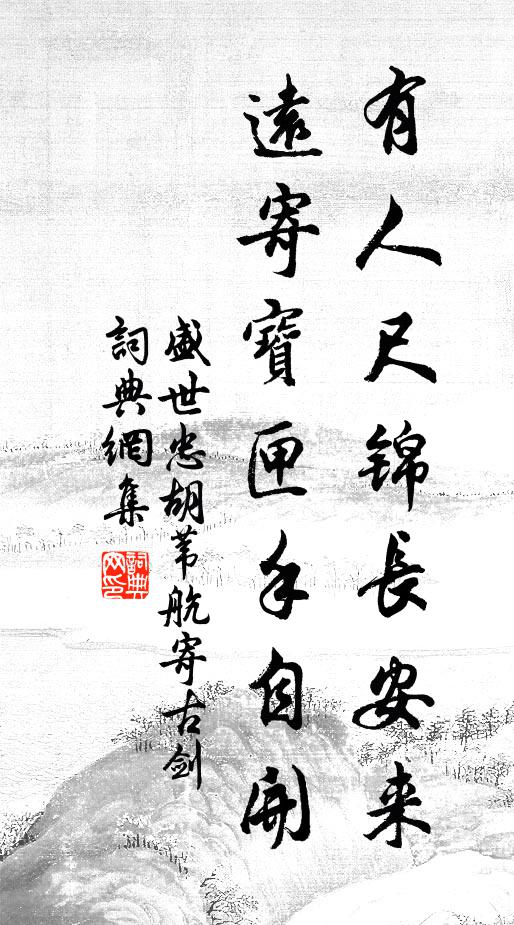 有人尺锦長安来
遠寄寶匣手自開
盛世忠胡苇航寄古劍
詞典網集
詞典網印